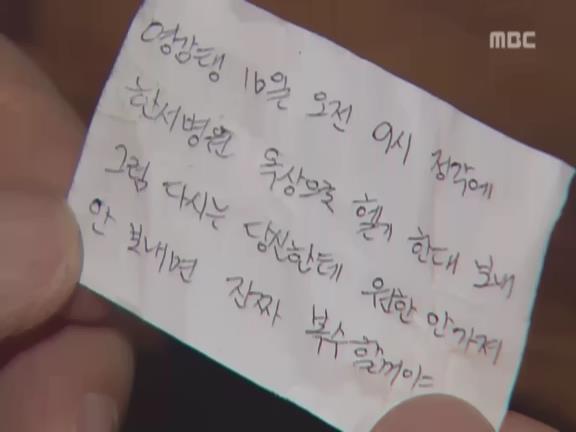 MBC
영감탱 16일 오전 9시 정각에
한서병원 옥상으로 헬기 한대 보내
그럼 다시는 당신한테 원한 안가져
안 보내면 진짜 복수할꺼야